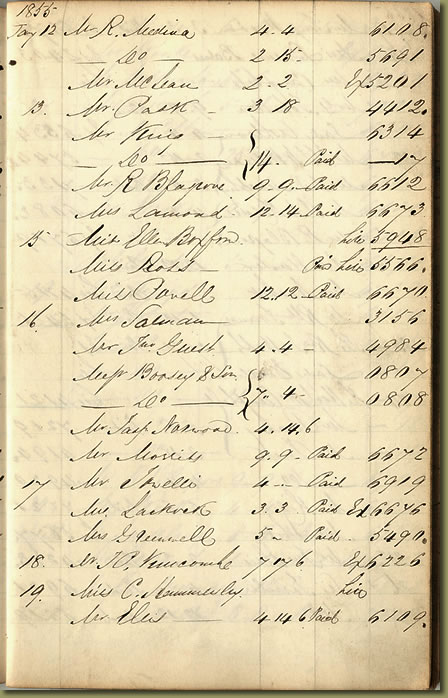 1855
Jany 12 Mr R. Medina 4 . 4 6108.
— Do — 2 15 - 5691
Mr McLean 2 . 2 Ex 5201
13. Mr Pask - 3 18 4412.
Mr 6314
— Do — 14 . Paid — 17
Mr R Blagrove 9 . 9 . Paid 6612
Mrs Lamond 12 . 14 Paid 6673
15 Miss Ellen 5948
Miss Ross 5566.
Miss Powell 12 . 12 . Paid 6670
16. Mrs Salman 3156
Mr Jno Guest 4 . 4 - 4984
Messrs Boosey & Son 0807
— Do — 7 . 4 - 0808
Mr Norwood 4 . 14 . 6
Mr Morris 9 . 9 . Paid 6672
17 Mr 4 . - Paid 6919
Mrs 3 . 3 . Paid Ex 6676
Mrs Greenwell 5 . Paid . 5490.
18. Mr Newcombe 7 17 6 Ex 6226
19. Miss C. Hammersley.
Mr Elis 4 14 6 Paid 6109.